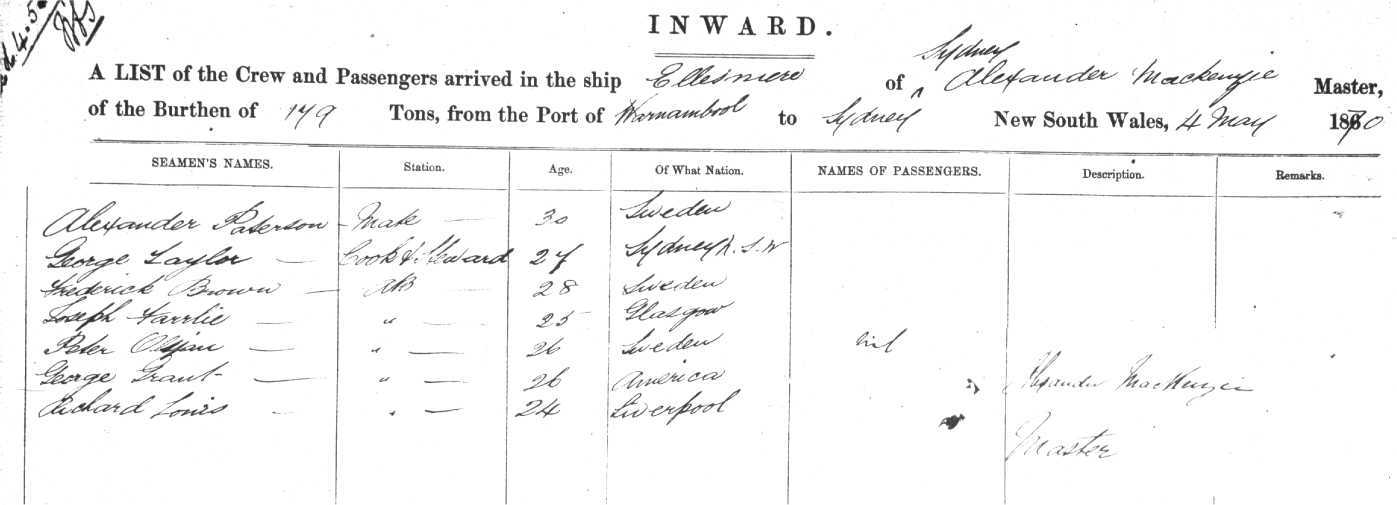 INWARD.
Sydney
A LIST of the Crew and Passengers arrived in the ship Ellesmere of ^ Alexander Mackenzie Master,
of the Burthen of 179 Tons, from the Port of Warnambool to Sydney New South Wales, 4 May 1870
SEAMEN'S NAMES. Station. Age. Of What Nation. NAMES OF PASSENGERS. Description. Remarks.
Alexander Paterson - Mate — 30 Sweden
George Taylor — Cook & Steward 27 Sydney N.S.W
Frederick Brown — AB — 28 Sweden
Joseph Farrlie — " — 25 Glasgow
Peter — " — 26 Sweden nil
George Grant — " — 26 America Alexander MacKenzie
Richard Louis - " — 24 Liverpool
Master